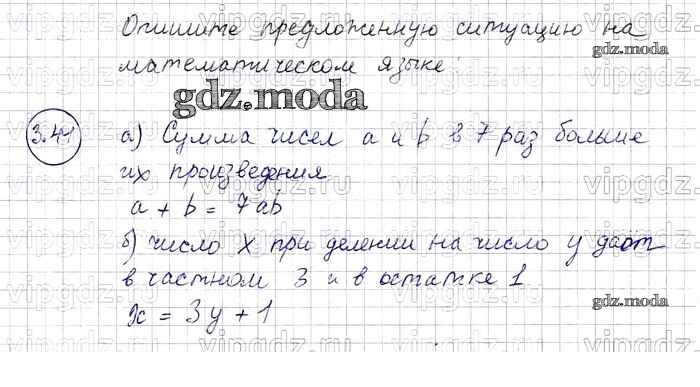 Опишите предложенную ситуацию на
gdz.moda
математическом языке
gdz.moda
3.41
а) Сумма чисел a и b в 7 раз больше
их произведения
a + b = 7ab
б) число x при делении на число y дает
в частном 3 и в остатке 1
gdz.moda
x = 3y + 1
vipgdz.ru